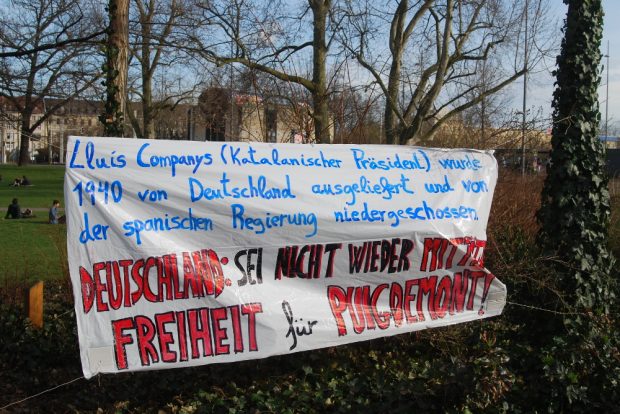 Lluis Companys (Katalanischer Präsident) wurde
1940 von Deutschland ausgeliefert und von
der spanischen Regierung niedergeschossen.
DEUTSCHLAND: SEI NICHT WIEDER
FREIHEIT für PUIGDEMONT!